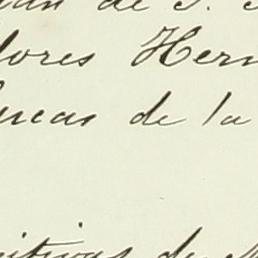 de
lores Hern
uecas de la
itivas de